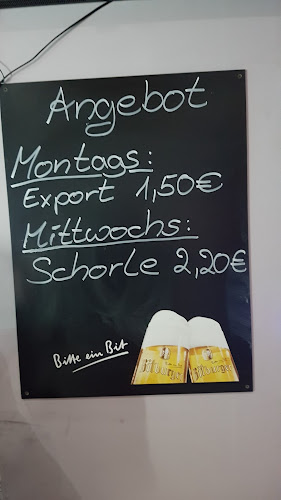 Angebot
Montags:
Export 1,50€
Mittwochs:
Schorle 2,20€
Bitte ein Bit